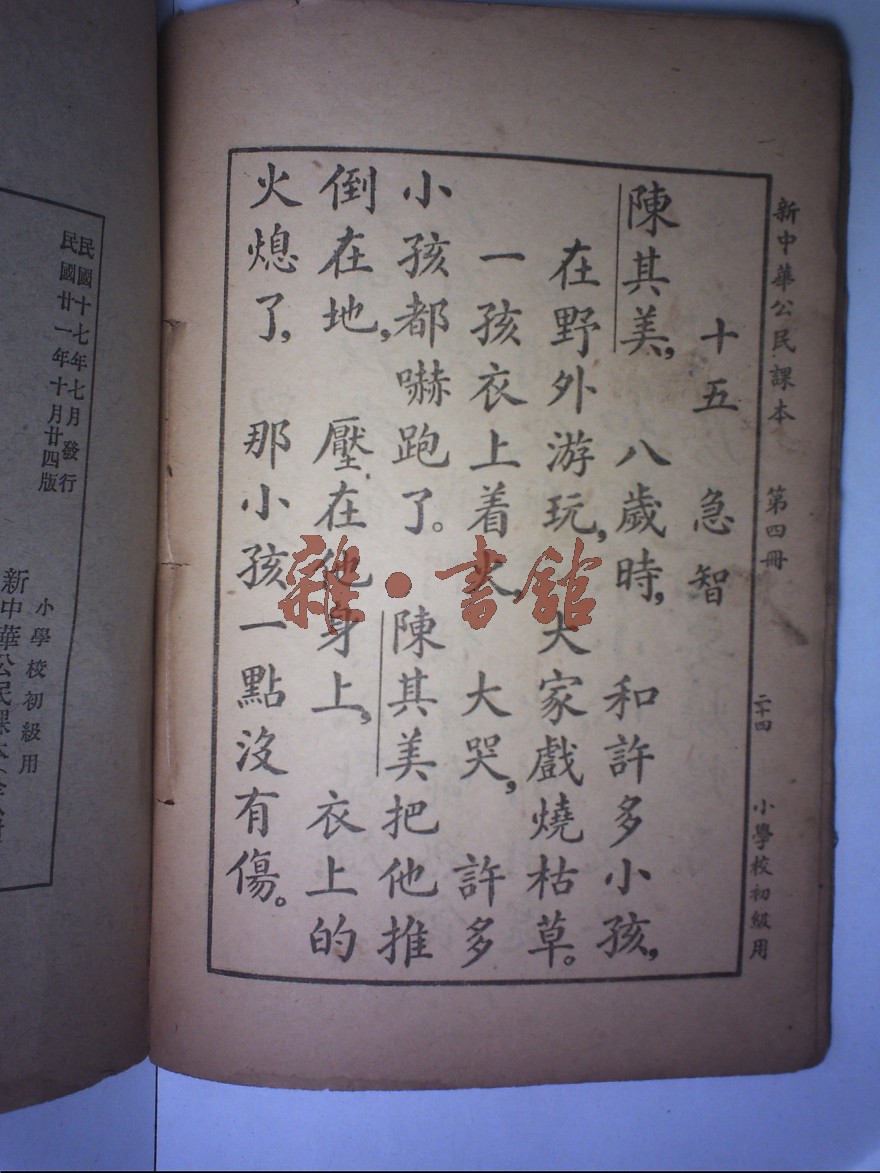 新中華公民課本 第四冊 二十四 小學校初級用
十五 急智
陳其美，八歲時，和許多小孩，
在野外游玩，大家戲燒枯草。
一孩衣上着火，大哭，許多
小孩都嚇跑了。陳其美把他推
倒在地，壓在他身上，衣上的
火熄了，那小孩一點沒有傷。
雜·書館
民國十七年七月發行
民國廿一年十月廿四版
小學校初級用
新中華公民課本